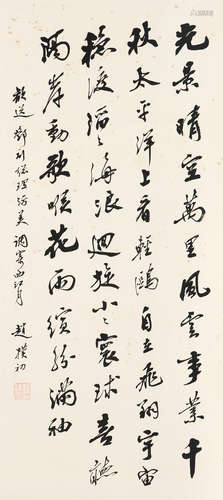 光景晴空萬里風雲事業千
秋太平洋上看輕鷗自在飛翔宇宙
穩渡海浪迴旋小小寰球喜聽
兩岸動歌喉花雨繽紛滿袖
歡送鄧副總理訪美 調寄西江月 趙樸初